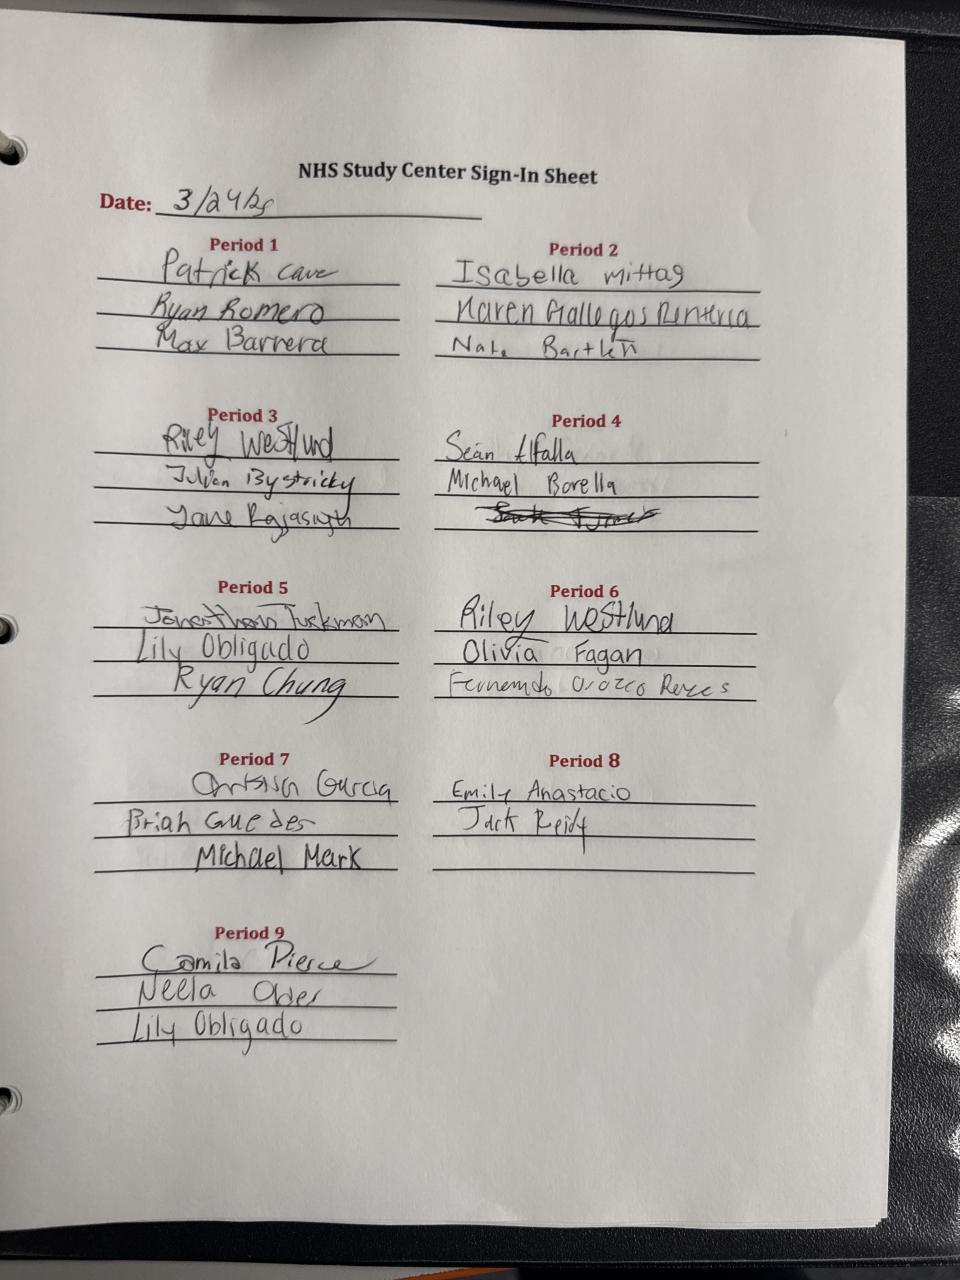 NHS Study Center Sign-In Sheet
Date: 3/24/25
Period 1
Patrick Cave
Ryan Romero
Max Barrera
Period 2
Isabella Mittag
Karen Gallegos Renteria
Nate Bartlett
Period 3
Riley Westlund
Julian Bystricky
Period 4
Sean Alfalla
Michael Borella
Period 5
Jonathan Tuckman
Lily Obligado
Ryan Chung
Period 6
Riley Westlund
Olivia Fagan
Fernando Orozco Reyes
Period 7
Garcia
Brian Guedes
Michael Mark
Period 8
Emily Anastacio
Jack Reidy
Period 9
Camila Pierce
Neela
Lily Obligado